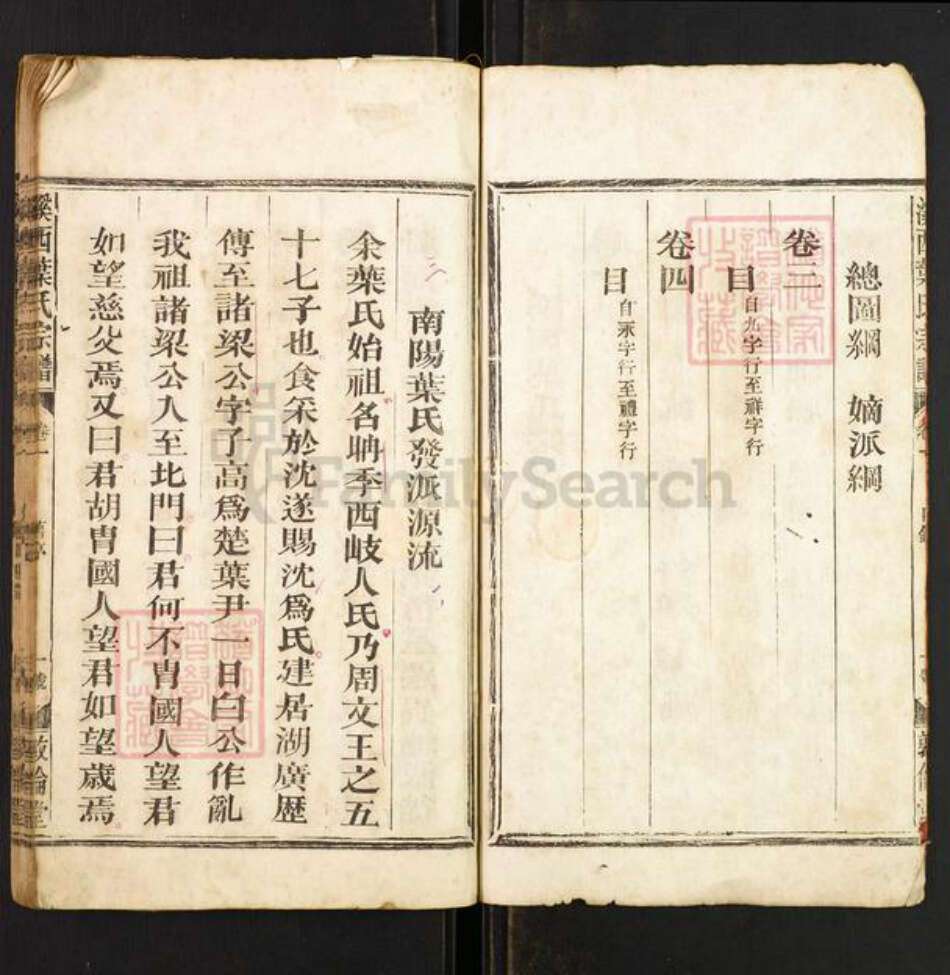 總圖綱 嫡派綱
卷三
目 自九字行至祥字行
卷四
目 自永字行至禮字行
南陽葉氏發派源流
余葉氏始祖名聃季西岐人氏乃周文王之五
十七子也食采於沈遂賜沈為氏建居湖廣歷
傳至諸梁公字子高為楚葉尹一日白公作亂
我祖諸梁公入至北門曰君何不冑國人望君
如望慈父焉又曰君胡冑國人望君如望歲焉
溪西葉氏宗譜
卷一
敦倫堂
FamilySearch